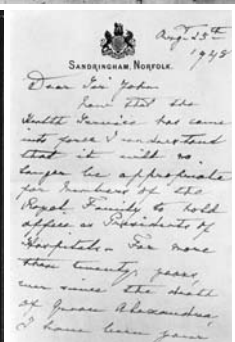 Aug: 25th
1948
SANDRINGHAM, NORFOLK.
Dear Sir John
Now that the
Health Service has come
into force I understand
that it will no
longer be appropriate
for Members of the
Royal Family to hold
office as Presidents of
Hospitals. For more
than twenty years,
ever since the death
of Queen Alexandra,
I have been your